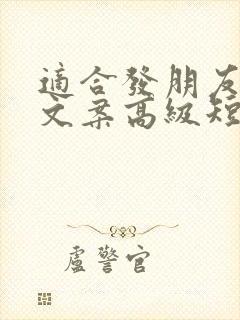 適合發朋友
文案高級短
盧警官